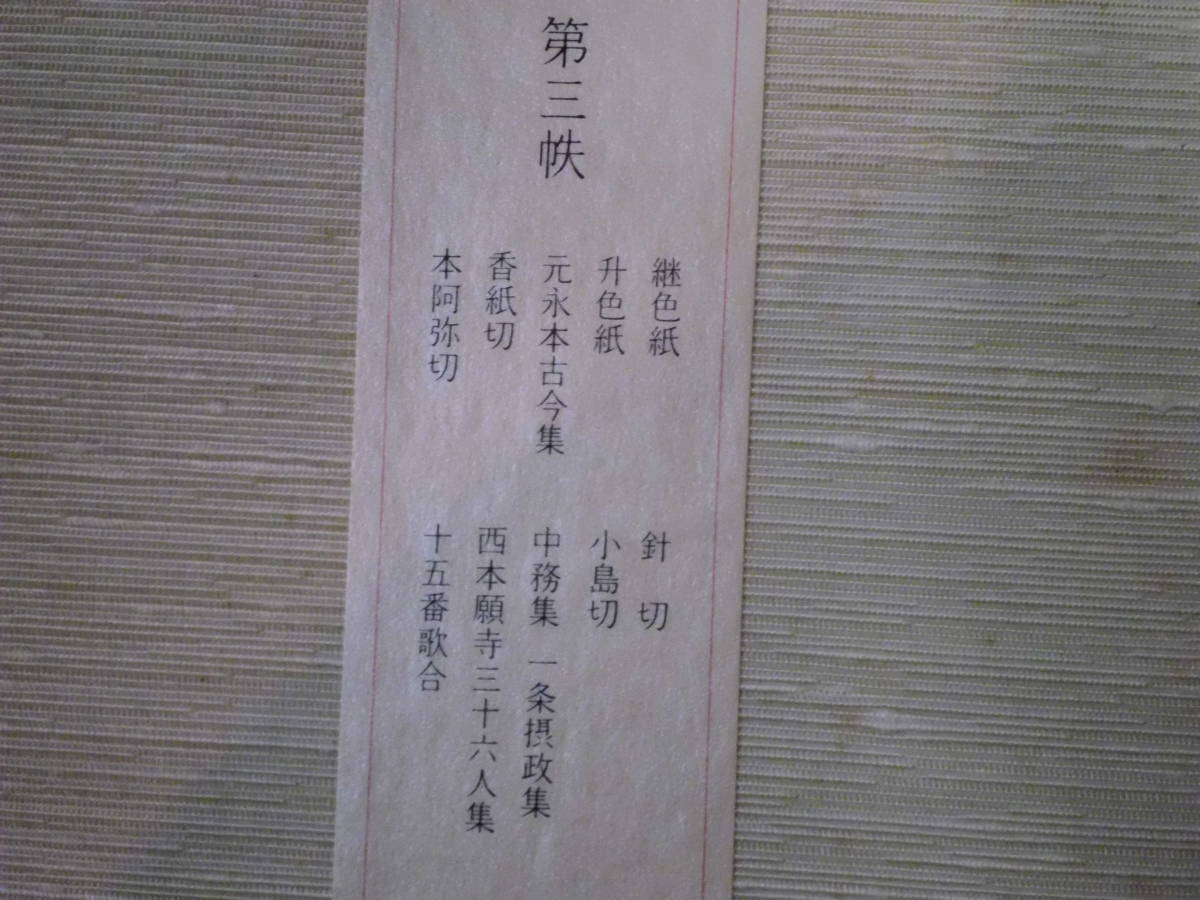 第三帙
継色紙
升色紙
元永本古今集
香紙切
本阿弥切
針切
小島切
中務集 一条摂政集
西本願寺三十六人集
十五番歌合